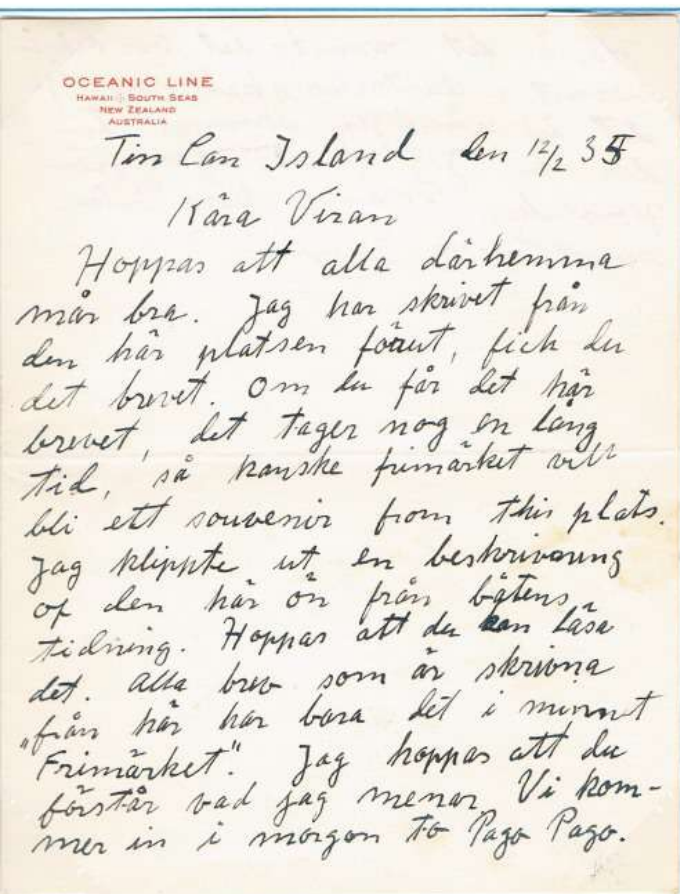 OCEANIC LINE
HAWAII SOUTH SEAS
NEW ZEALAND
AUSTRALIA
Tin Can Island den 12/2 35
Kära Viran
Hoppas att alla därhemma
mår bra. Jag har skrivet från
den här platsen förut, fick du
det brevet. Om du får det här
brevet, det tager nog en lång
tid, så kanske frimärket vill
bli ett souvenir from this plats.
Jag klippte ut en beskrivning
of den här ön från båtens
tidning. Hoppas att du kan läsa
det. Alla brev som är skrivna
"från här har bara det i minnet
Frimärket". Jag hoppas att du
förstår vad jag menar. Vi kom-
mer in i morgon to Pago Pago.